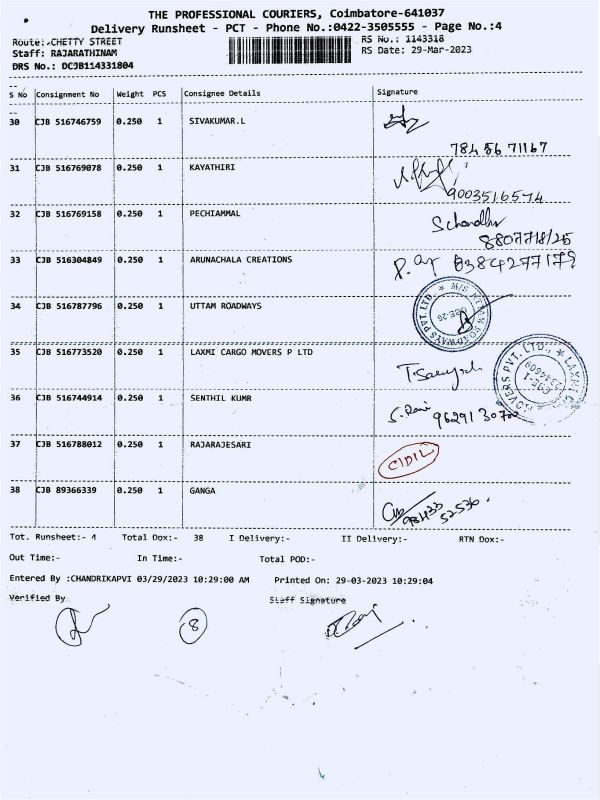 THE PROFESSIONAL COURIERS, Coimbatore-641037
Delivery Runsheet - PCT - Phone No.:0422-3505555 - Page No.:4
Route: CHETTY STREET
RS No.: 1143318
Staff: RAJARATHINAM
RS Date: 29-Mar-2023
DRS No.: DCJB114331804
S No Consignment No Weight PCS Consignee Details Signature
30 CJB 516746759 0.250 1 SIVAKUMAR.L
784 56 71167
31 CJB 516769078 0.250 1 KAYATHIRI
9003516574
32 CJB 516769158 0.250 1 PECHIAMMAL
33 CJB 516304849 0.250 1 ARUNACHALA CREATIONS
34 CJB 516787796 0.250 1 UTTAM ROADWAYS
35 CJB 516773520 0.250 1 LAXMI CARGO MOVERS P LTD
36 CJB 516744914 0.250 1 SENTHIL KUMR
37 CJB 516788012 0.250 1 RAJARAJESARI
38 CJB 89366339 0.250 1 GANGA
Tot. Runsheet:- 4 Total Dox:- 38 I Delivery:- II Delivery:- RTN Dox:-
Out Time:- In Time:- Total POD:-
Entered By :CHANDRIKAPVI 03/29/2023 10:29:00 AM Printed On: 29-03-2023 10:29:04
Verified By Staff Signature
8